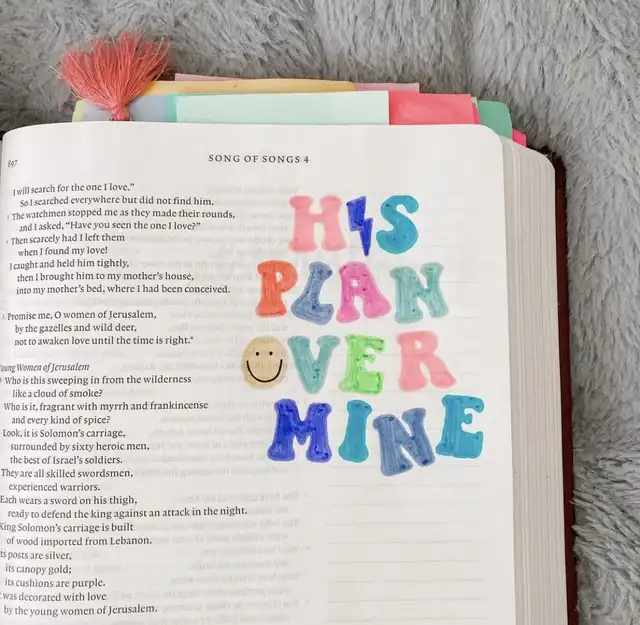 397
SONG OF SONGS 4
I will search for the one I love."
So I searched everywhere but did not find him.
3 The watchmen stopped me as they made their rounds,
and I asked, "Have you seen the one I love?"
4 Then scarcely had I left them
when I found my love!
I caught and held him tightly,
then I brought him to my mother's house,
into my mother's bed, where I had been conceived.
5 Promise me, O women of Jerusalem,
by the gazelles and wild deer,
not to awaken love until the time is right.*
Young Women of Jerusalem
6 Who is this sweeping in from the wilderness
like a cloud of smoke?
Who is it, fragrant with myrrh and frankincense
and every kind of spice?
Look, it is Solomon's carriage,
surrounded by sixty heroic men,
the best of Israel's soldiers.
They are all skilled swordsmen,
experienced warriors.
Each wears a sword on his thigh,
ready to defend the king against an attack in the night.
King Solomon's carriage is built
of wood imported from Lebanon.
Its posts are silver,
its canopy gold;
its cushions are purple.
was decorated with love
by the young women of Jerusalem.
HIS
PLAN
OVER
MINE